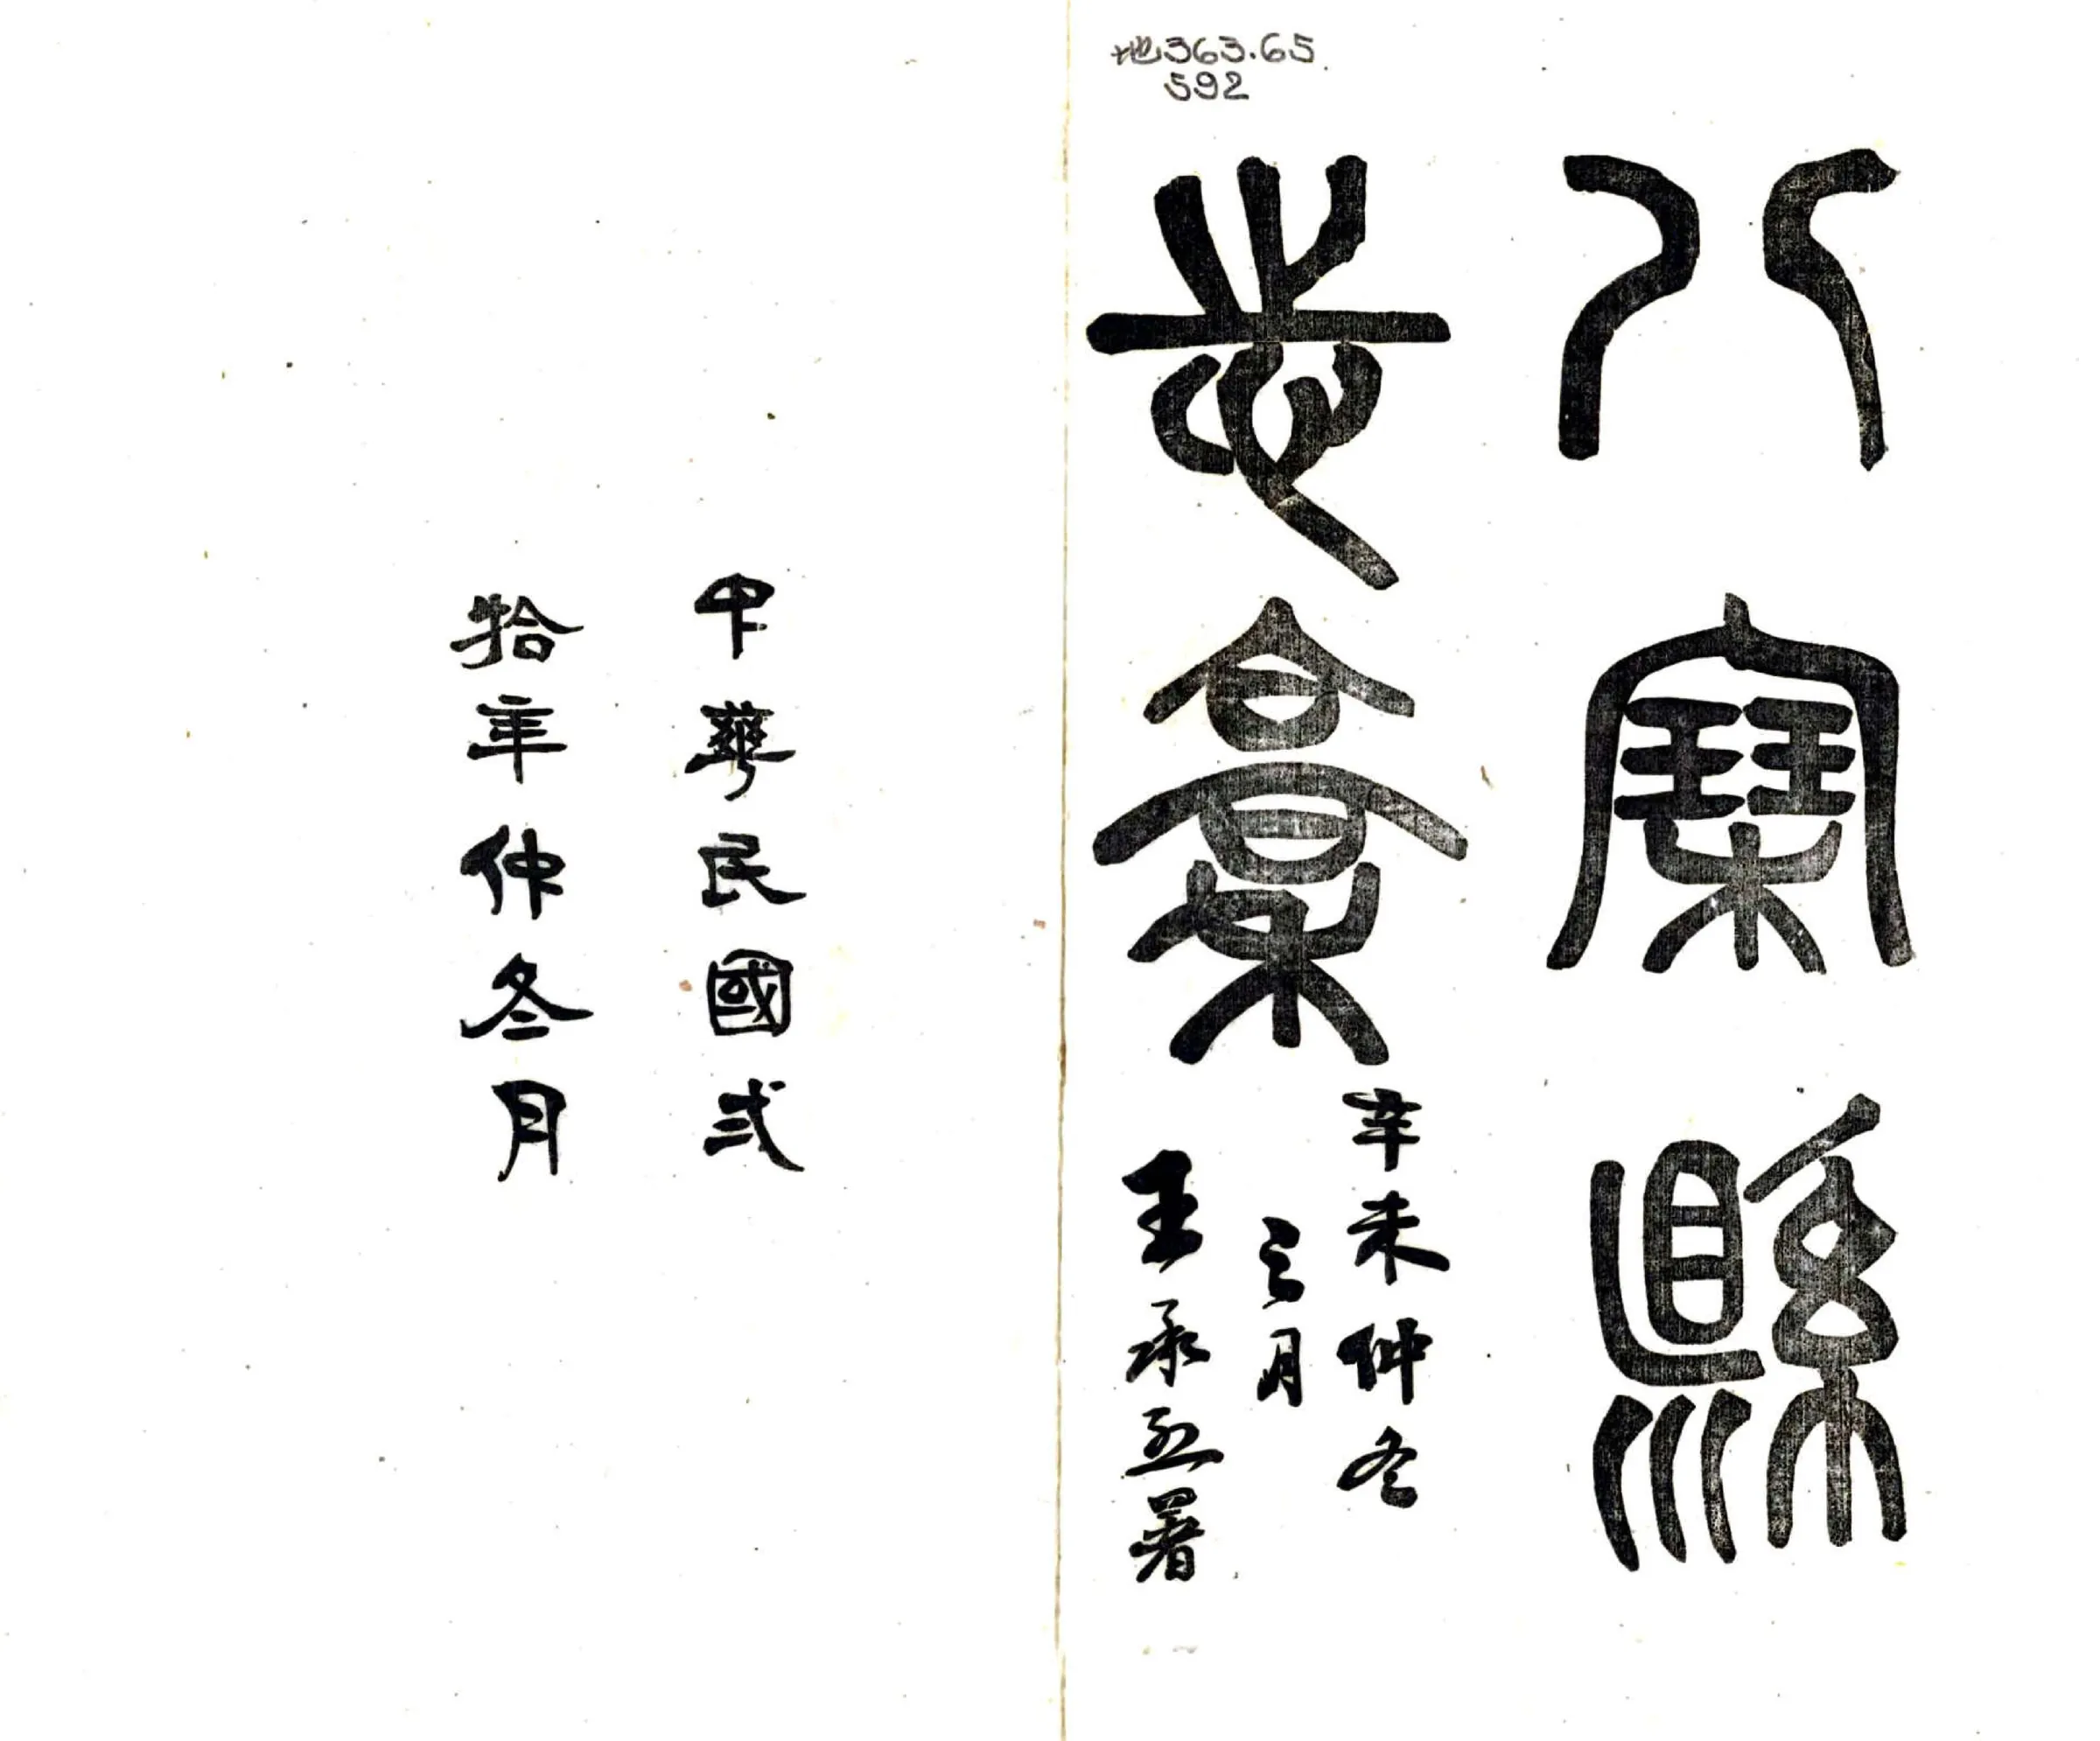 地363.65
592
八寨縣
志稾
辛未仲冬
之月
王承烈署
中華民國弍
拾年仲冬月